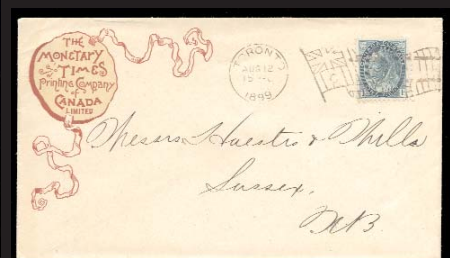 THE
MONETARY
TIMES
Printing Company
OF
CANADA
LIMITED
TORONTO
AUG 12
1899
Messrs Huestis & Mills
Sussex,
N.B.